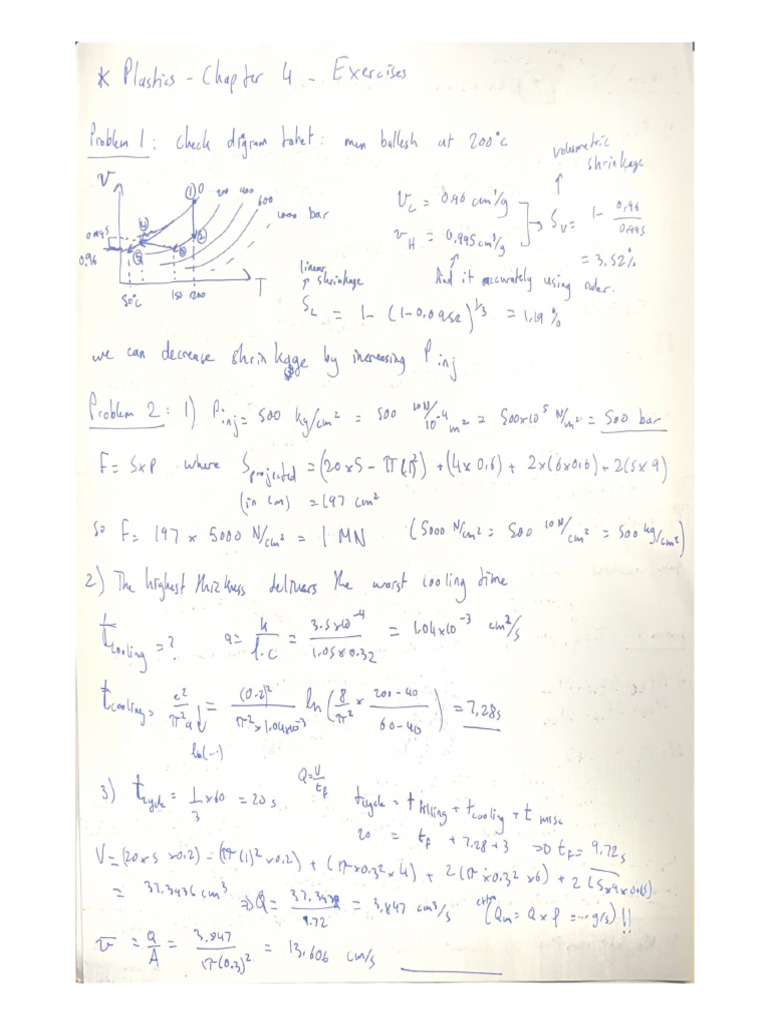 * Plastics - Chapter 4 - Exercises
Problem 1: check digram tohet: men ballesh at 200°C
volumetric
shrinkage
v
① 0 200 400
600
1000 bar
② ③ ④ ⑤
0.995
0.96
50°C 150 200 T
V_C = 0.96 cm³/g
V_H = 0.995 cm³/g
S_V = 1 - 0.96/0.995
= 3.52%
And it accurately using ruler.
linear
shrinkage
S_L = 1 - (1 - 0.0352)^1/3 = 1.19%
we can decrease shrinkage by increasing P inj
Problem 2: 1) P inj = 500 kg/cm² = 500 10N/10⁻⁴ m² = 500x10⁵ N/m² = 500 bar
F = S×P where S projected = (20×5 - π(1)²) + (4×0.6) + 2×(6×0.6) + 2(5×9)
(in cm) = 197 cm²
so F = 197 × 5000 N/cm² = 1 MN (5000 N/cm² = 500 10N/cm² = 500 kg/cm²)
2) The highest thickness delivers the worst cooling time
t cooling = ? a = k/ρ.c = 3.5x10⁻⁴/1.05x0.32 = 1.04x10⁻³ cm²/s
t cooling = e²/π²a = (0.2)²/π²x1.04x10⁻³ ln(8/π² x 200-40/60-40) = 7.28s
ln(...)
3) t cycle = 1/3 x60 = 20 s Q = V/t_f t cycle = t filling + t cooling + t misc
20 = t_f + 7.28 + 3 => t_f = 9.72s
V = (20x5x0.2) - (π(1)²x0.2) + (π x0.3²x4) + 2(π x0.3²x6) + 2(5x9x0.15)
= 37.3936 cm³ => Q = 37.3936/9.72 = 3.847 cm³/s (Q_m = Q x ρ = ... g/s)!!
v̄ = Q/A = 3.847/π(0.3)² = 13.606 cm/s